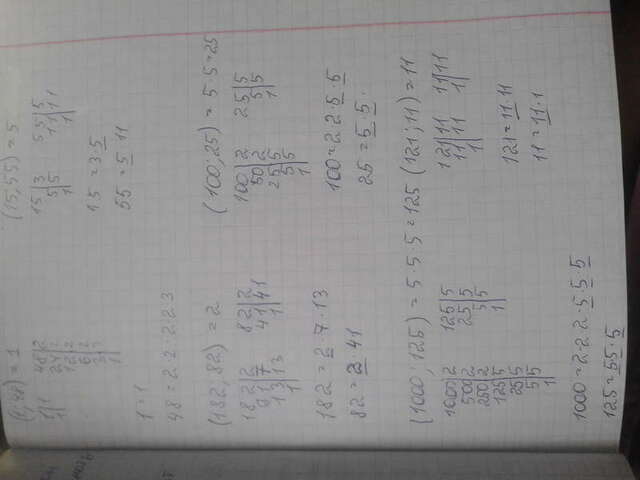 (1;48) = 1 (15;55) = 5
1|1 48|2 15|3 55|5
24|2 5|5 11|11
12|2 1| 1|
6|2
3|3
1|
1=1 15=3·5
48=2·2·2·2·3 55=5·11
(182;82) = 2 (100;25) = 5·5=25
182|2 82|2 100|2 25|5
91|7 41|41 50|2 5|5
13|13 1| 25|5 1|
1| 5|5
1|
182=2·7·13 100=2·2·5·5
82=2·41 25=5·5.
(1000;125) = 5·5·5=125 (121;11)=11
1000|2 125|5 121|11 11|11
500|2 25|5 11|11 1|
250|2 5|5 1|
125|5 1|
25|5
5|5
1|
121=11·11
11=11·1
1000=2·2·2·5·5·5
125=5·5·5